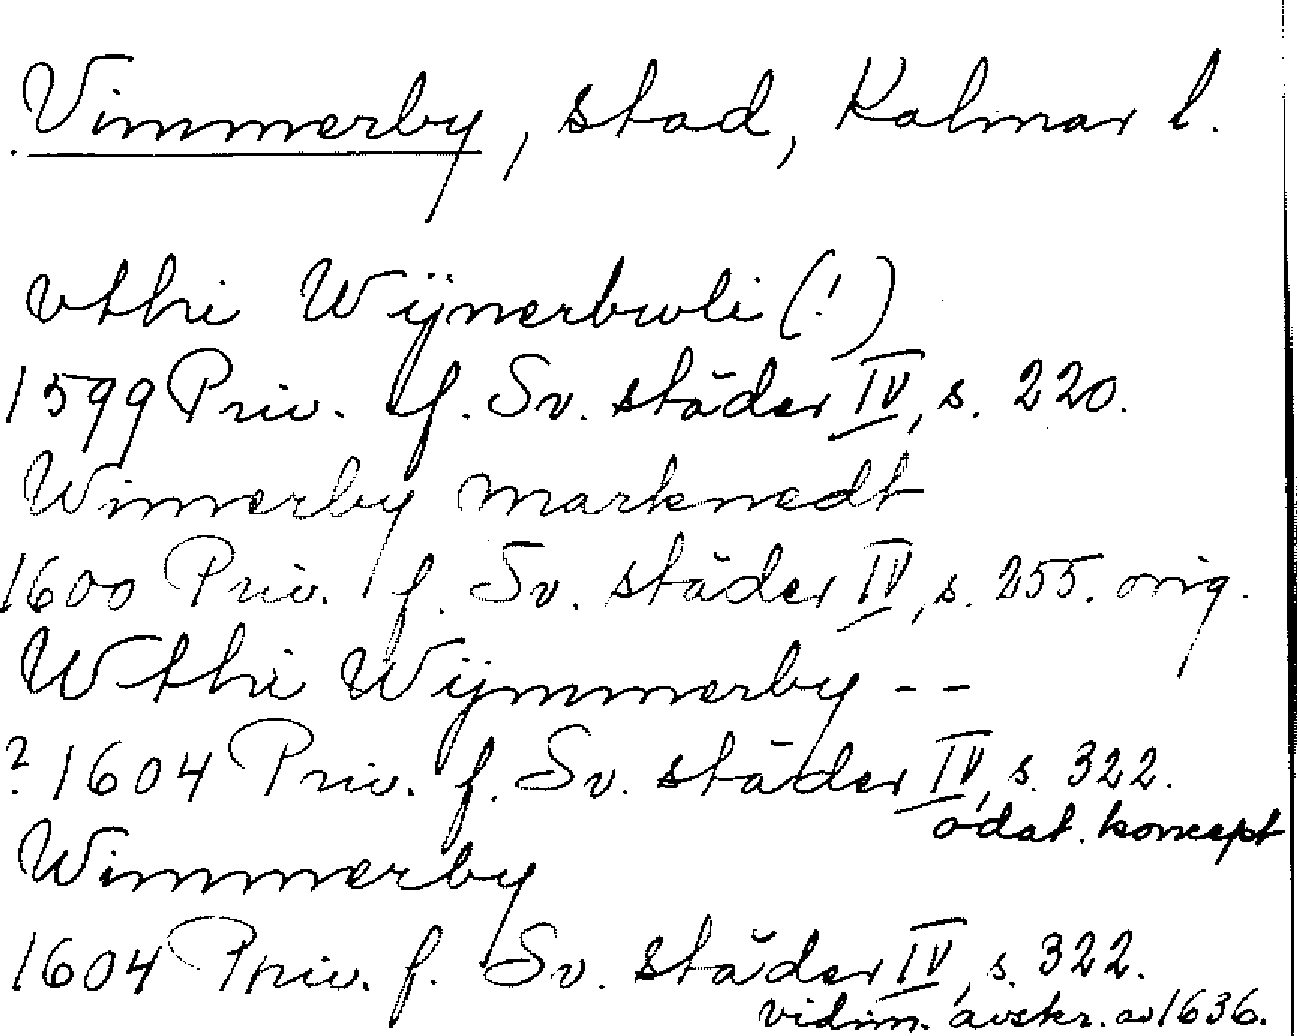 Vimmerby, stad, Kalmar l.
vthi Wijnerbwli (!)
1599 Priv. f. Sv. städer IV, s. 220.
Wimerby marknedt
1600 Priv. f. Sv. städer IV, s. 255. orig.
Wthi Wijmmerby - -
? 1604 Priv. f. Sv. städer IV, s. 322.
odat. koncept
Wimmerby
1604 Priv. f. Sv. städer IV, s. 322.
vidim. avskr. av 1636.